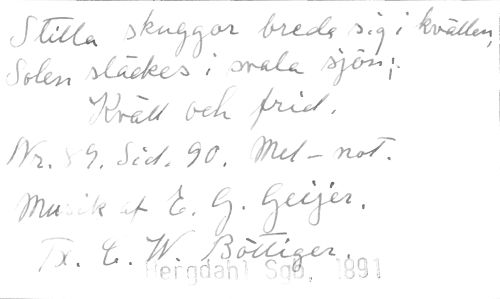 Stilla skuggor breda sig i kvällen,
Solen släckes i svala sjön;
Kväll och frid.
Nr. 89. Sid. 90. Mel-not.
Musik af E. G. Geijer.
Tx. C. W. Böttiger.
Bergdahl Sgb, 1891